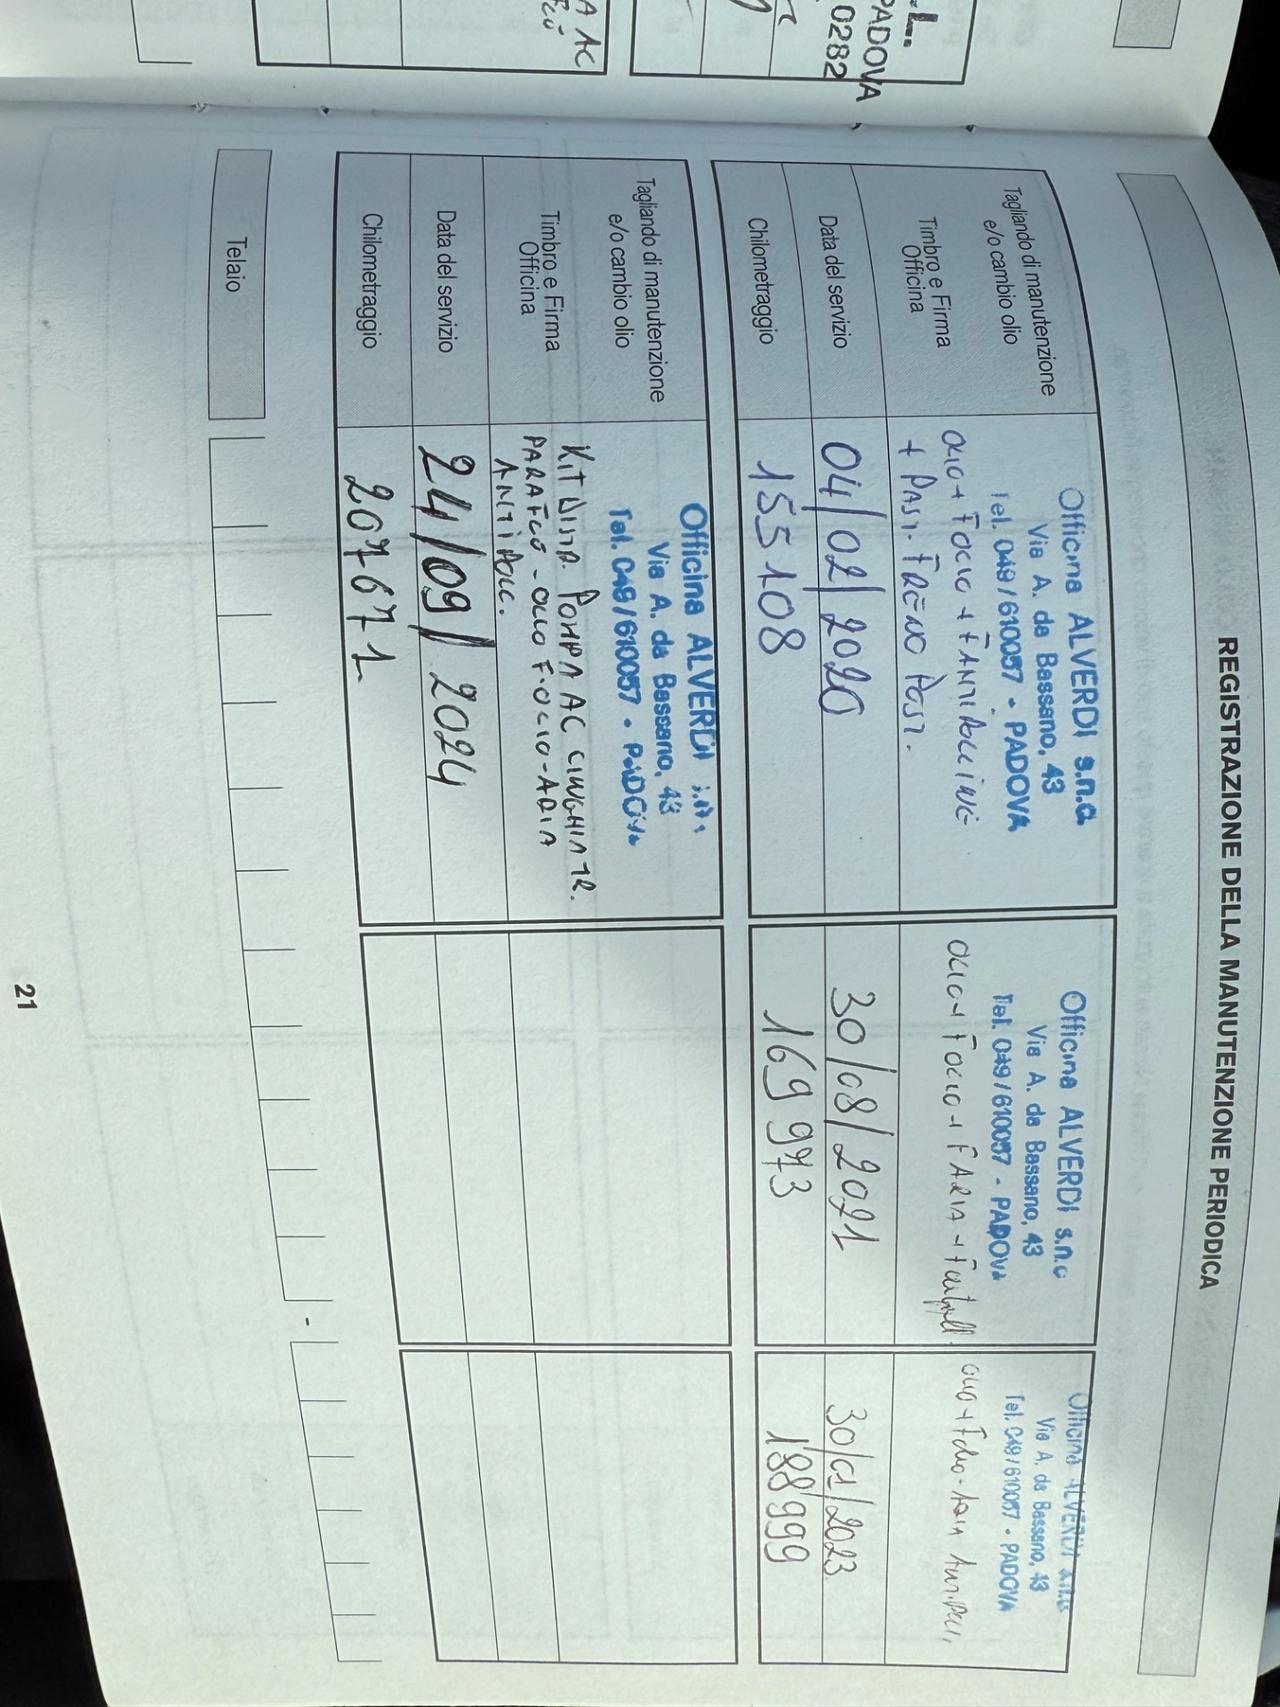 L..
PADOVA
0282
A AC
REGISTRAZIONE DELLA MANUTENZIONE PERIODICA
Tagliando di manutenzione
e/o cambio olio
Timbro e Firma
Officina
Data del servizio
Chilometraggio
Officina ALVERDI s.n.c
Via A. da Bassano, 43
Tel. 049/610057 - PADOVA
OLIO + FOLIO + FANTIPOLLINE
+ PAST. FRENO POST.
04/02/2020
155108
Officina ALVERDI s.n.c
Via A. da Bassano, 43
Tel. 049/610057 - PADOVA
OLIO + FOLIO + FARIA +
30/08/2021
169973
Officina ALVERDI s.n.c
Via A. da Bassano, 43
Tel. 049/610057 - PADOVA
OLIO +
30/01/2023
188999
Tagliando di manutenzione
e/o cambio olio
Timbro e Firma
Officina
Data del servizio
Chilometraggio
Officina ALVERDI
Via A. da Bassano, 43
Tel. 049/610057 - PADOVA
KIT DISTR. POMPA AC CINGHIA TR.
PARAFLU - OLIO F.OLIO - ARIA
ANTIPOLL.
24/09/2024
207671
Telaio
-
21